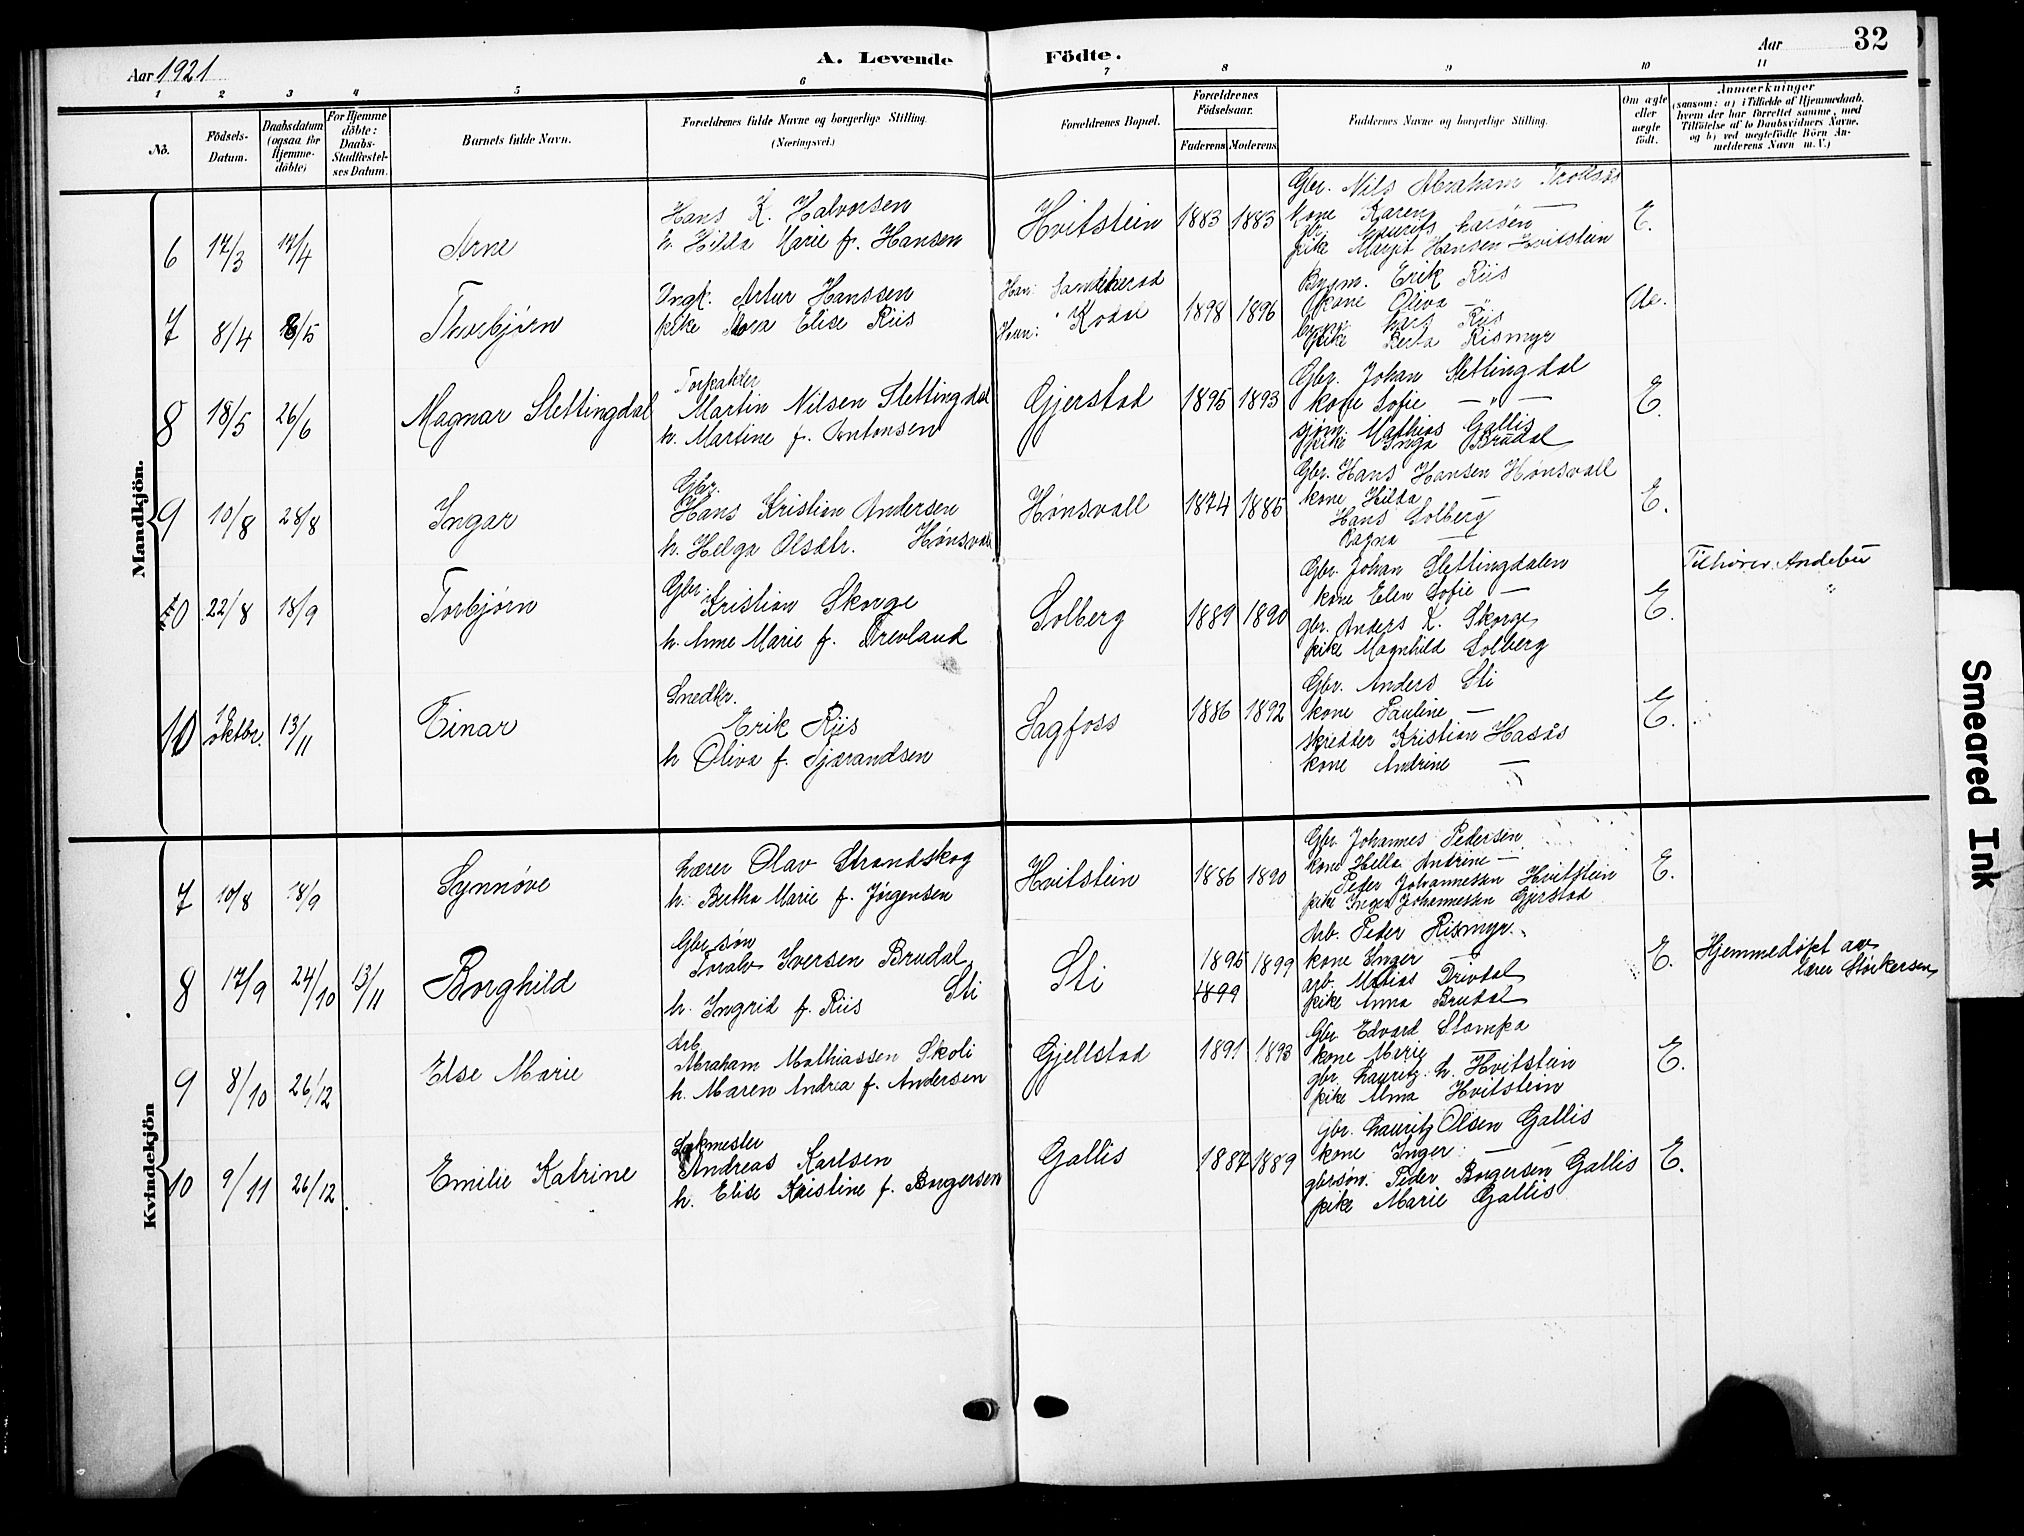 Aar 1921
A. Levende Födte.
Aar
32
1 2 3 4 5 6 7 8 9 10 11
No.
Födsels-Datum.
Daabsdatum (ogsaa for Hjemmedöbte)
For Hjemmedöbte: Daabs-Stadfæstelses Datum.
Barnets fulde Navn.
Forældrenes fulde Navne og borgerlige Stilling. (Næringsvei.)
Forældrenes Bopæl.
Forældrenes Födselsaar.
Faderens Moderens
Faddernes Navne og borgerlige Stilling.
Om ægte eller uægte födt.
Anmærkninger
(saasom: a) i Tilfælde af Hjemmedaab, hvem der har forrettet samme, med Tilföielse af to Daabsvidners Navne, og b) ved uægtefödte Börn Anmelderens Navn m. V.)
Mandkjön.
6 17/3 17/4 Arne
Hans K. Halvorsen
h. Hilda Marie f. Hansen
Hvitstein 1883 1883
Gbr. Nils Abraham Trollsås
kone Karen —
gbr. Laurits Larsen
pike Margit Hansen Hvitstein
E.
7 8/4 8/5 Thorbjørn
Ungk. Artur Hanssen
pike Mora Elise Riis
Han: Sandeherad
Hun: Kodal
1898 1896
Bygm. Erik Riis
kone Oliva — " —
Lars Riis
pike Berta Rismyr
Ue.
8 18/5 26/6 Magnar Slettingdal
Torpakter
Martin Nilsen Slettingdal
h. Martine f. Antonsen
Gjerstad 1895 1893
Gbr. Johan Slettingdal
kone Sofie — " —
sjøm. Mathias Gallis
pike Inga Brudal
E.
9 10/8 28/8 Ingar
Gbr.
Hans Kristian Andersen
h. Helga Olsdtr. Hønsvall
Hønsvall 1874 1885
Gbr. Hans Hansen Hønsvall
kone Hilda —
Hans Solberg
Ragna —
E.
10 22/8 18/9 Torbjørn
Gbr. Kristian Skorge
h. Anne Marie f. Trevland
Solberg 1889 1890
Gbr. Johan Slettingdalen
kone Elen Sofie —
gbr. Anders K. Skorge
pike Magnhild Solberg
E.
Tilhører Andebu
"
10 oktbr. 13/11 Einar
Snedkr.
Erik Riis
h Oliva f. Tjærandsen
Sagfoss 1886 1892
Gbr. Anders Sti
kone Pauline —
skredder Kristian Hasås
kone Andrine —
E.
Kvindekjön
7 10/8 18/9 Synnøve
Lærer Olav Strandskog
h. Bertha Marie f. Jørgensen
Hvitstein 1886 1890
Gbr Johannes Pedersen
kone Hella Andrine —
Peder Johannessen Hvitstein
pike Inga Johannessen Gjerstad
E.
8 17/9 24/10 13/11 Borghild
Gbr søn
Toralv Iversen Brudal, Sti
h. Ingrid f. Riis
Sti 1895 1899
1899
Arb. Peder Rismyr.
kone Inger —
arb. Matias Drivdal
pike Anna Brudal
E.
Hjemmedøpt av
lærer Størkersen
9 8/10 26/12 Else Marie
Arb
Abraham Mathiassen Skoli
h. Maren Andrea f. Andersen
Gjellstad 1891 1893
Gbr Edvard Stampa
kone Merie
gbr. Lauritz h. Hvitstein
pike Alma Hvitstein
E.
10 9/11 26/12 Emilie Katrine
Andreas Karlsen
h. Elise Kristine f. Borgersen
Gallis 1887 1889
gbr. Lauritz Olsen Gallis
kone Inger —
gbrsøn. Peder Borgersen Gallis
pike Marie Gallis
E.
Smeared Ink